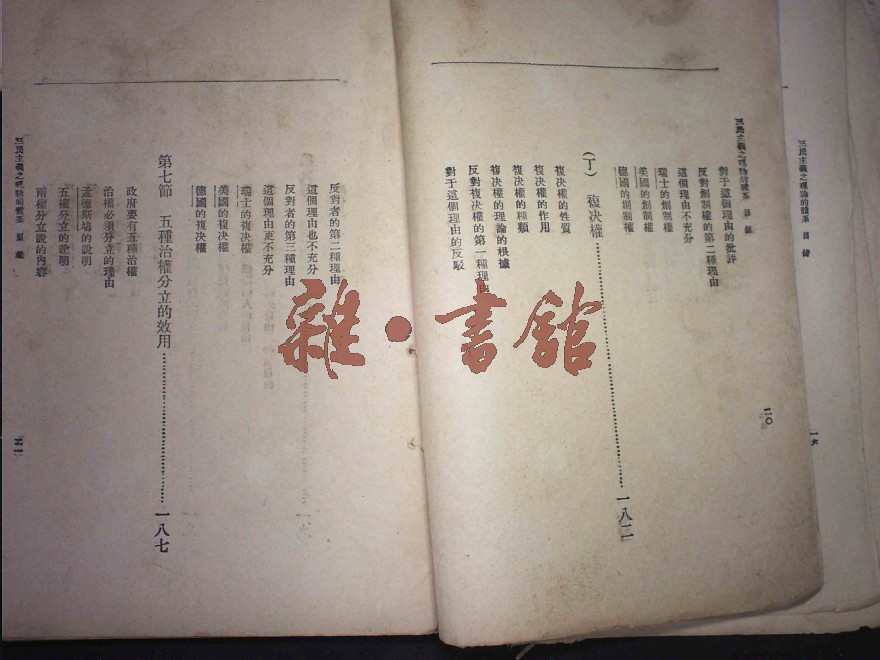 三民主義之理論的體系 目錄
一六
三民主義之理論的體系 目錄
二〇
對于這個理由的批評
反對創制權的第二種理由
這個理由不充分
瑞士的創制權
美國的創制權
德國的創制權
(丁) 複決權……一八二
複決權的性質
複決權的作用
複決權的種類
複決權的理論的根據
反對複決權的第一種理由
對于這個理由的反駁
反對者的第二種理由
這個理由也不充分
反對者的第三種理由
這個理由更不充分
瑞士的複決權
美國的複決權
德國的複決權
第七節 五種治權分立的效用……一八七
政府要有五種治權
治權必須分立的理由
孟德斯鳩的說明
五權分立的說明
兩權分立說的內容
三民主義之理論的體系 目錄
二一
雜·書館